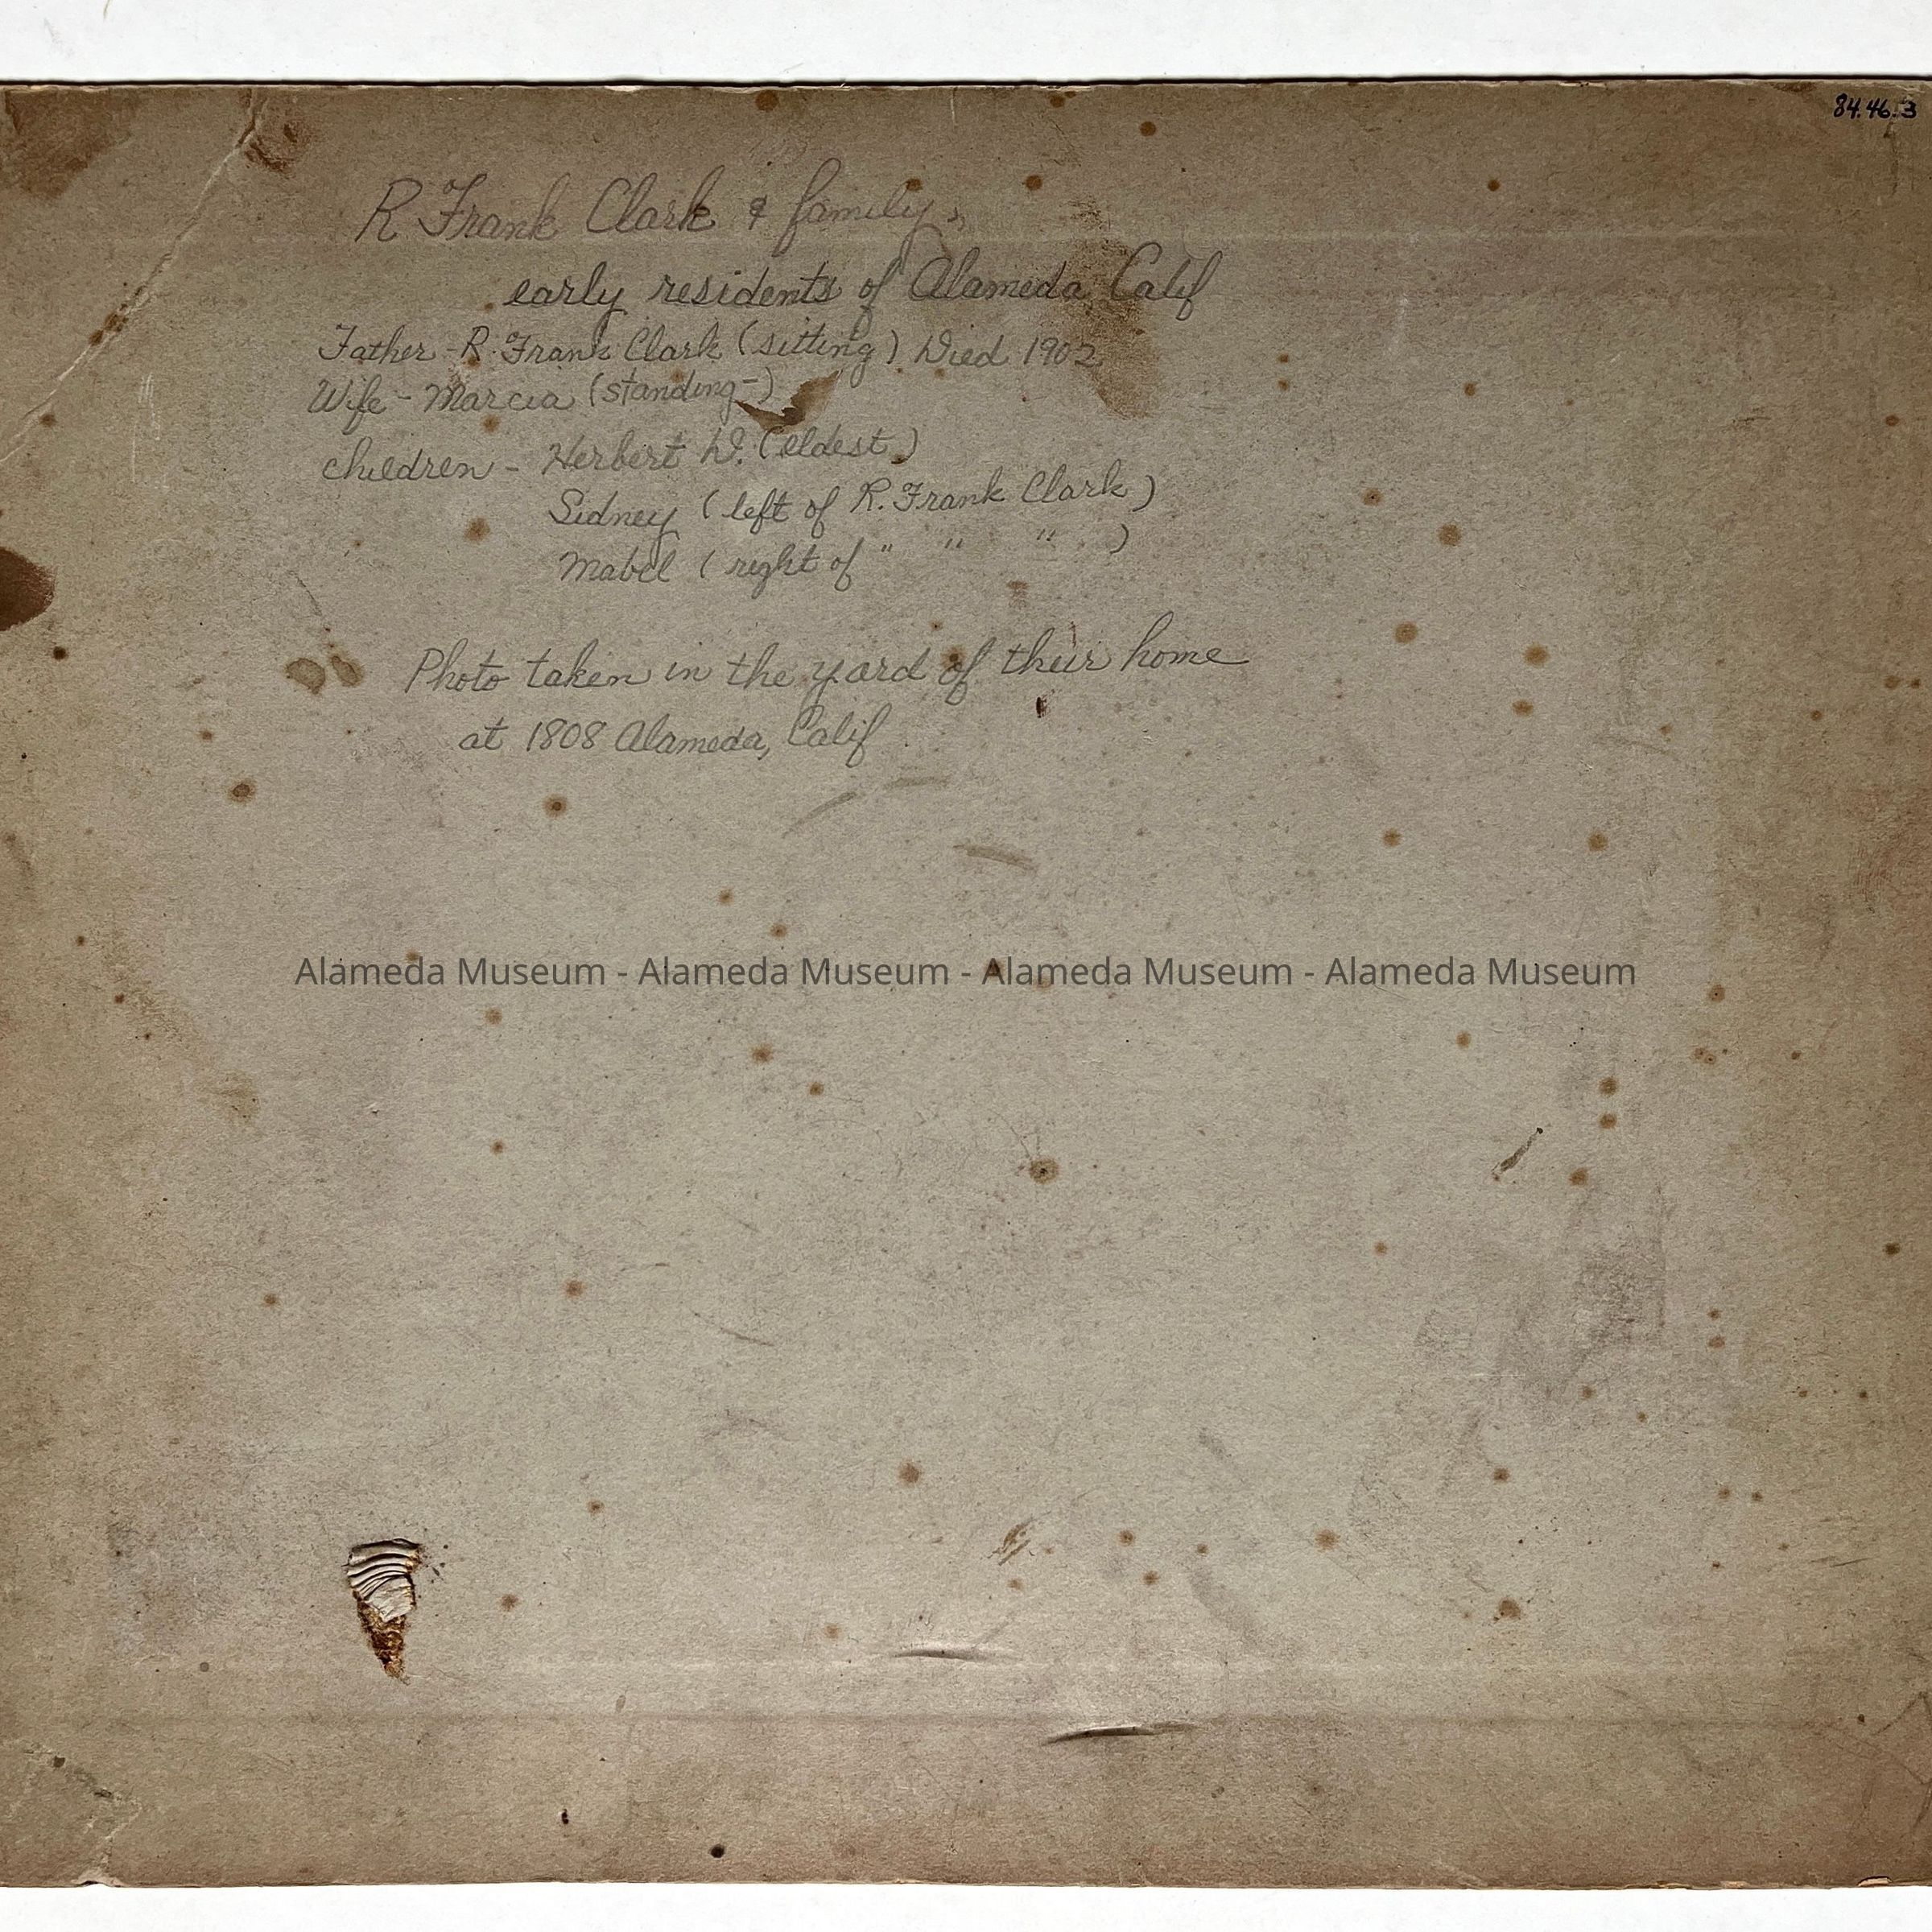 84.46.3
R Frank Clark & family,
early residents of Alameda Calif
Father - R. Frank Clark (sitting) Died 1902
Wife - Marcia (standing-)
children - Herbert W. (eldest)
Sidney (left of R. Frank Clark)
Mabel (right of " " " )
Photo taken in the yard of their home
at 1808 Alameda, Calif
Alameda Museum - Alameda Museum - Alameda Museum - Alameda Museum